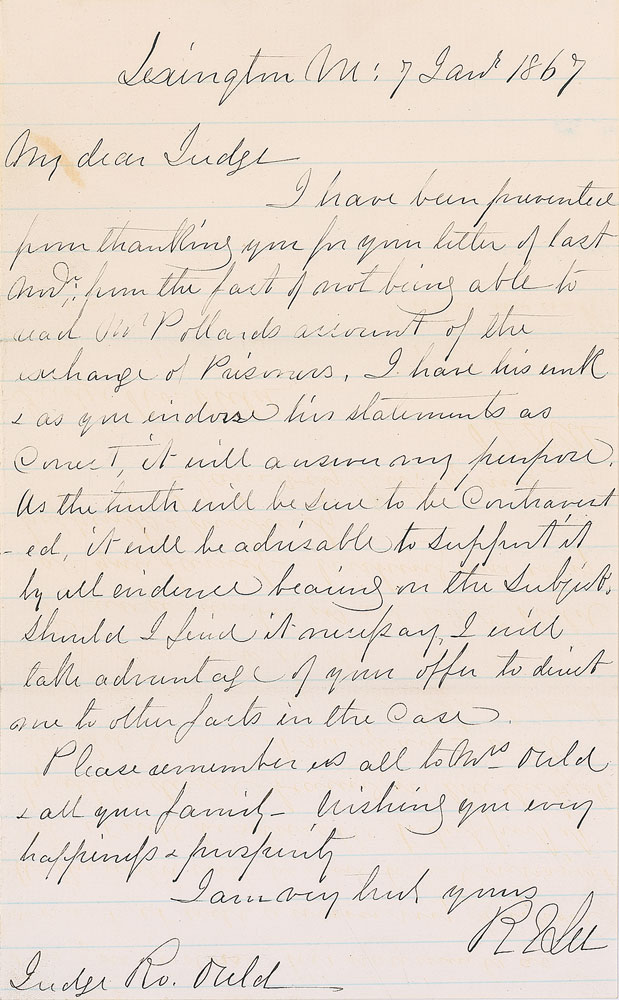 Lexington Va: 7 Jany 1867
My dear Judge
I have been prevented
from thanking you for your letter of last
Novr: from the fact of not being able to
read Mr Pollards account of the
exchange of Prisoners. I have his work
& as you endorse his statements as
Correct, it will answer my purpose.
As the truth will be sure to be Controvert
-ed, it will be advisable to support it
by all evidence bearing on the subject.
Should I find it necessary, I will
take advantage of your offer to direct
me to other facts in the Case.
Please remember us all to Mrs Ould
& all your family - Wishing you every
happiness & prosperity
I am very truly yours
R E Lee
Judge Ro. Ould